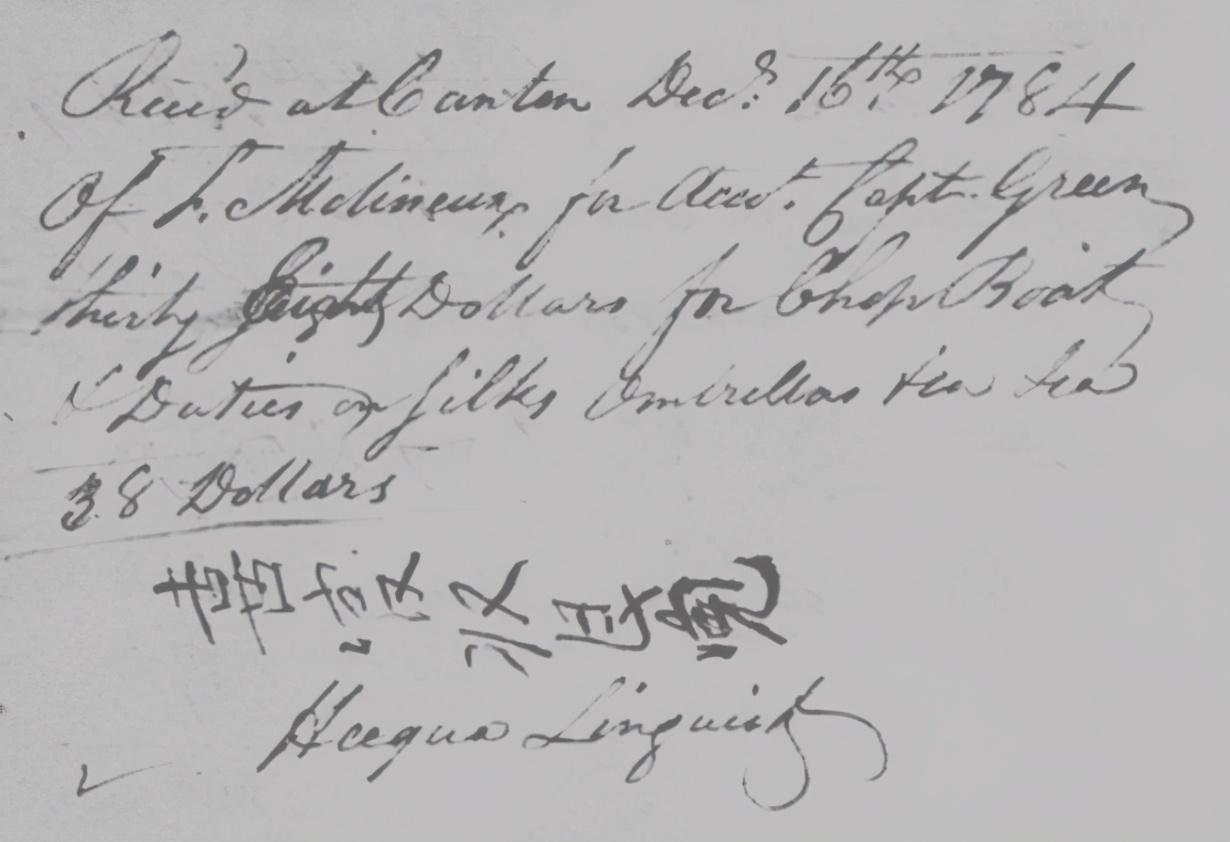 Rec'd at Canton Decr. 16th. 1784
Of F. Molineux for Acct. Capt. Green
thirty Eight Dollars for Chop Boat
& Duties on Silks Umbrellas &ca &ca
38 Dollars
Hcequa Linguist